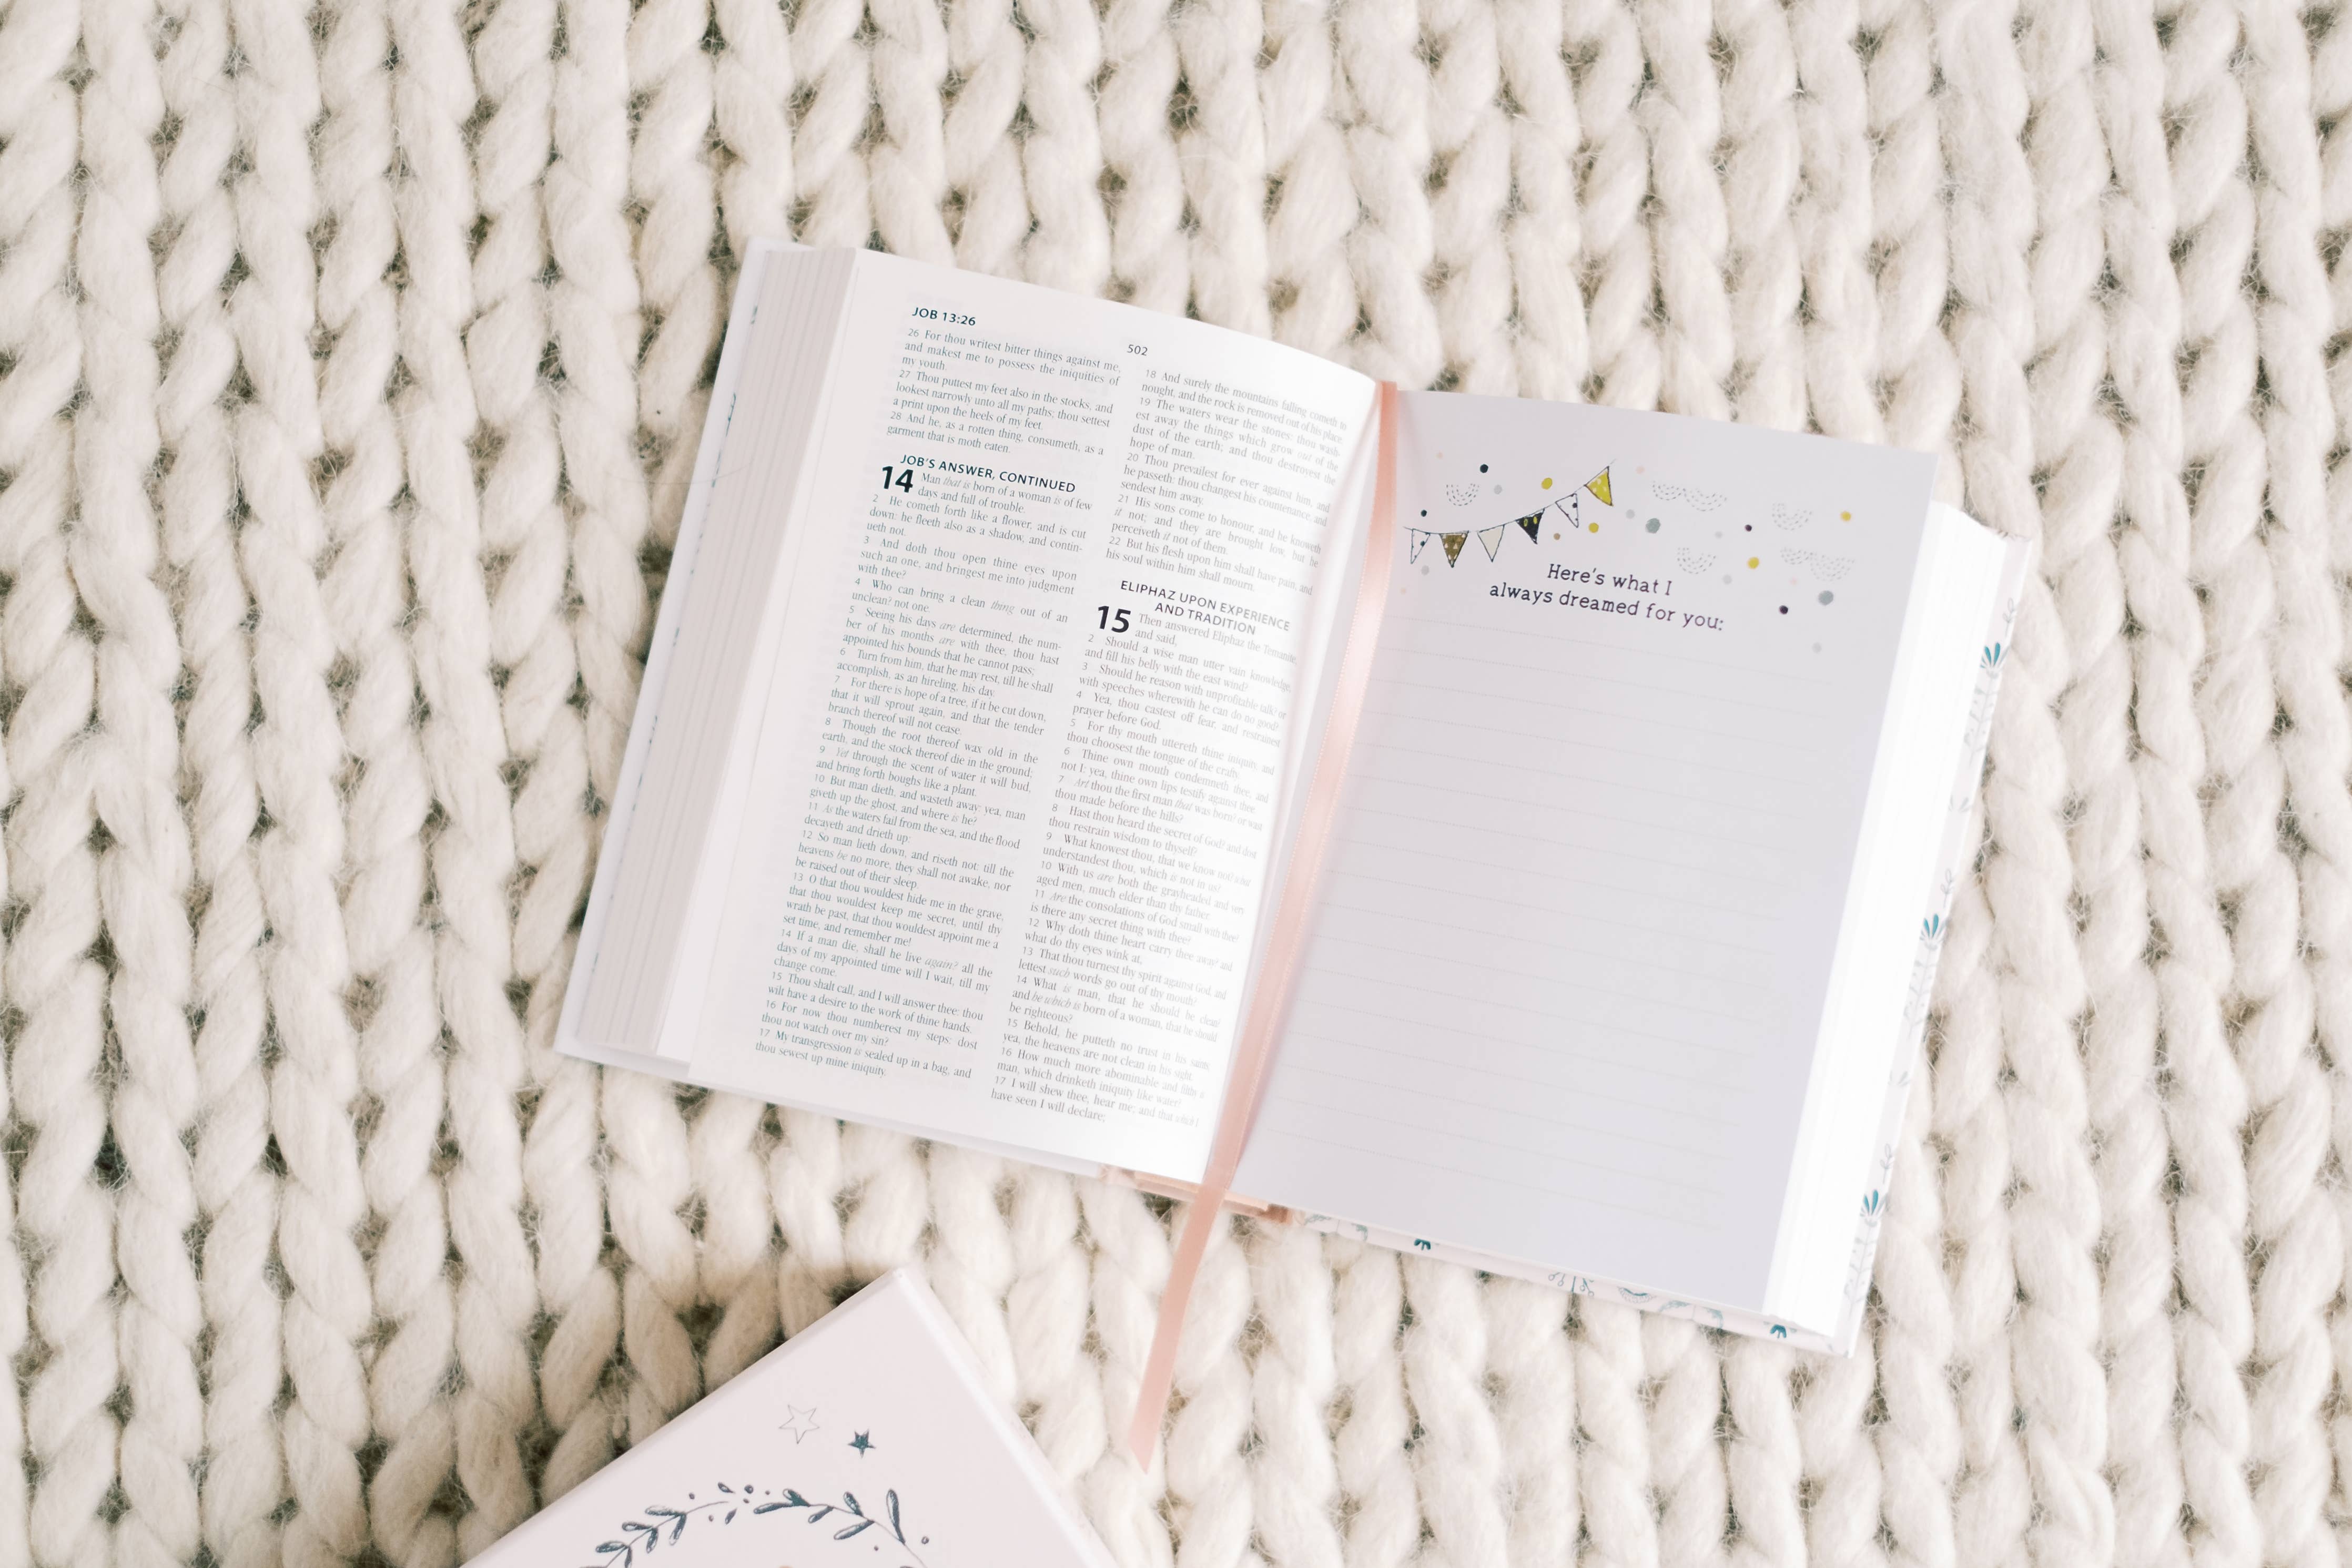 JOB 13:26
26 For thou writest bitter things against me,
and makest me to possess the iniquities of
my youth.
27 Thou puttest my feet also in the stocks, and
lookest narrowly unto all my paths; thou settest
a print upon the heels of my feet.
28 And he, as a rotten thing, consumeth, as a
garment that is moth eaten.
JOB'S ANSWER, CONTINUED
14 Man that is born of a woman is of few
days and full of trouble.
2 He cometh forth like a flower, and is cut
down: he fleeth also as a shadow, and contin-
ueth not.
3 And doth thou open thine eyes upon
such an one, and bringest me into judgment
with thee?
4 Who can bring a clean thing out of an
unclean? not one.
5 Seeing his days are determined, the num-
ber of his months are with thee, thou hast
appointed his bounds that he cannot pass;
6 Turn from him, that he may rest, till he shall
accomplish, as an hireling, his day.
7 For there is hope of a tree, if it be cut down,
that it will sprout again, and that the tender
branch thereof will not cease.
8 Though the root thereof wax old in the
earth, and the stock thereof die in the ground;
9 Yet through the scent of water it will bud,
and bring forth boughs like a plant.
10 But man dieth, and wasteth away: yea, man
giveth up the ghost, and where is he?
11 As the waters fail from the sea, and the flood
decayeth and drieth up:
12 So man lieth down, and riseth not: till the
heavens be no more, they shall not awake, nor
be raised out of their sleep.
13 O that thou wouldest hide me in the grave,
that thou wouldest keep me secret, until thy
wrath be past, that thou wouldest appoint me a
set time, and remember me!
14 If a man die, shall he live again? all the
days of my appointed time will I wait, till my
change come.
15 Thou shalt call, and I will answer thee: thou
wilt have a desire to the work of thine hands.
16 For now thou numberest my steps: dost
thou not watch over my sin?
17 My transgression is sealed up in a bag, and
thou sewest up mine iniquity.
502
18 And surely the mountains falling cometh to
nought, and the rock is removed out of his place.
19 The waters wear the stones: thou wash-
est away the things which grow out of the
dust of the earth; and thou destroyest the
hope of man.
20 Thou prevailest for ever against him, and
he passeth: thou changest his countenance, and
sendest him away.
21 His sons come to honour, and he knoweth
it not; and they are brought low, but he
perceiveth it not of them.
22 But his flesh upon him shall have pain, and
his soul within him shall mourn.
ELIPHAZ UPON EXPERIENCE
AND TRADITION
15 Then answered Eliphaz the Temanite,
and said,
2 Should a wise man utter vain knowledge,
and fill his belly with the east wind?
3 Should he reason with unprofitable talk? or
with speeches wherewith he can do no good?
4 Yea, thou castest off fear, and restrainest
prayer before God.
5 For thy mouth uttereth thine iniquity, and
thou choosest the tongue of the crafty.
6 Thine own mouth condemneth thee, and
not I: yea, thine own lips testify against thee.
7 Art thou the first man that was born? or wast
thou made before the hills?
8 Hast thou heard the secret of God? and dost
thou restrain wisdom to thyself?
9 What knowest thou, that we know not? what
understandest thou, which is not in us?
10 With us are both the grayheaded and very
aged men, much elder than thy father.
11 Are the consolations of God small with thee?
is there any secret thing with thee?
12 Why doth thine heart carry thee away? and
what do thy eyes wink at,
13 That thou turnest thy spirit against God, and
lettest such words go out of thy mouth?
14 What is man, that he should be clean?
and he which is born of a woman, that he should
be righteous?
15 Behold, he putteth no trust in his saints;
yea, the heavens are not clean in his sight.
16 How much more abominable and filthy is
man, which drinketh iniquity like water?
17 I will shew thee, hear me; and that which I
have seen I will declare;
Here's what I
always dreamed for you: